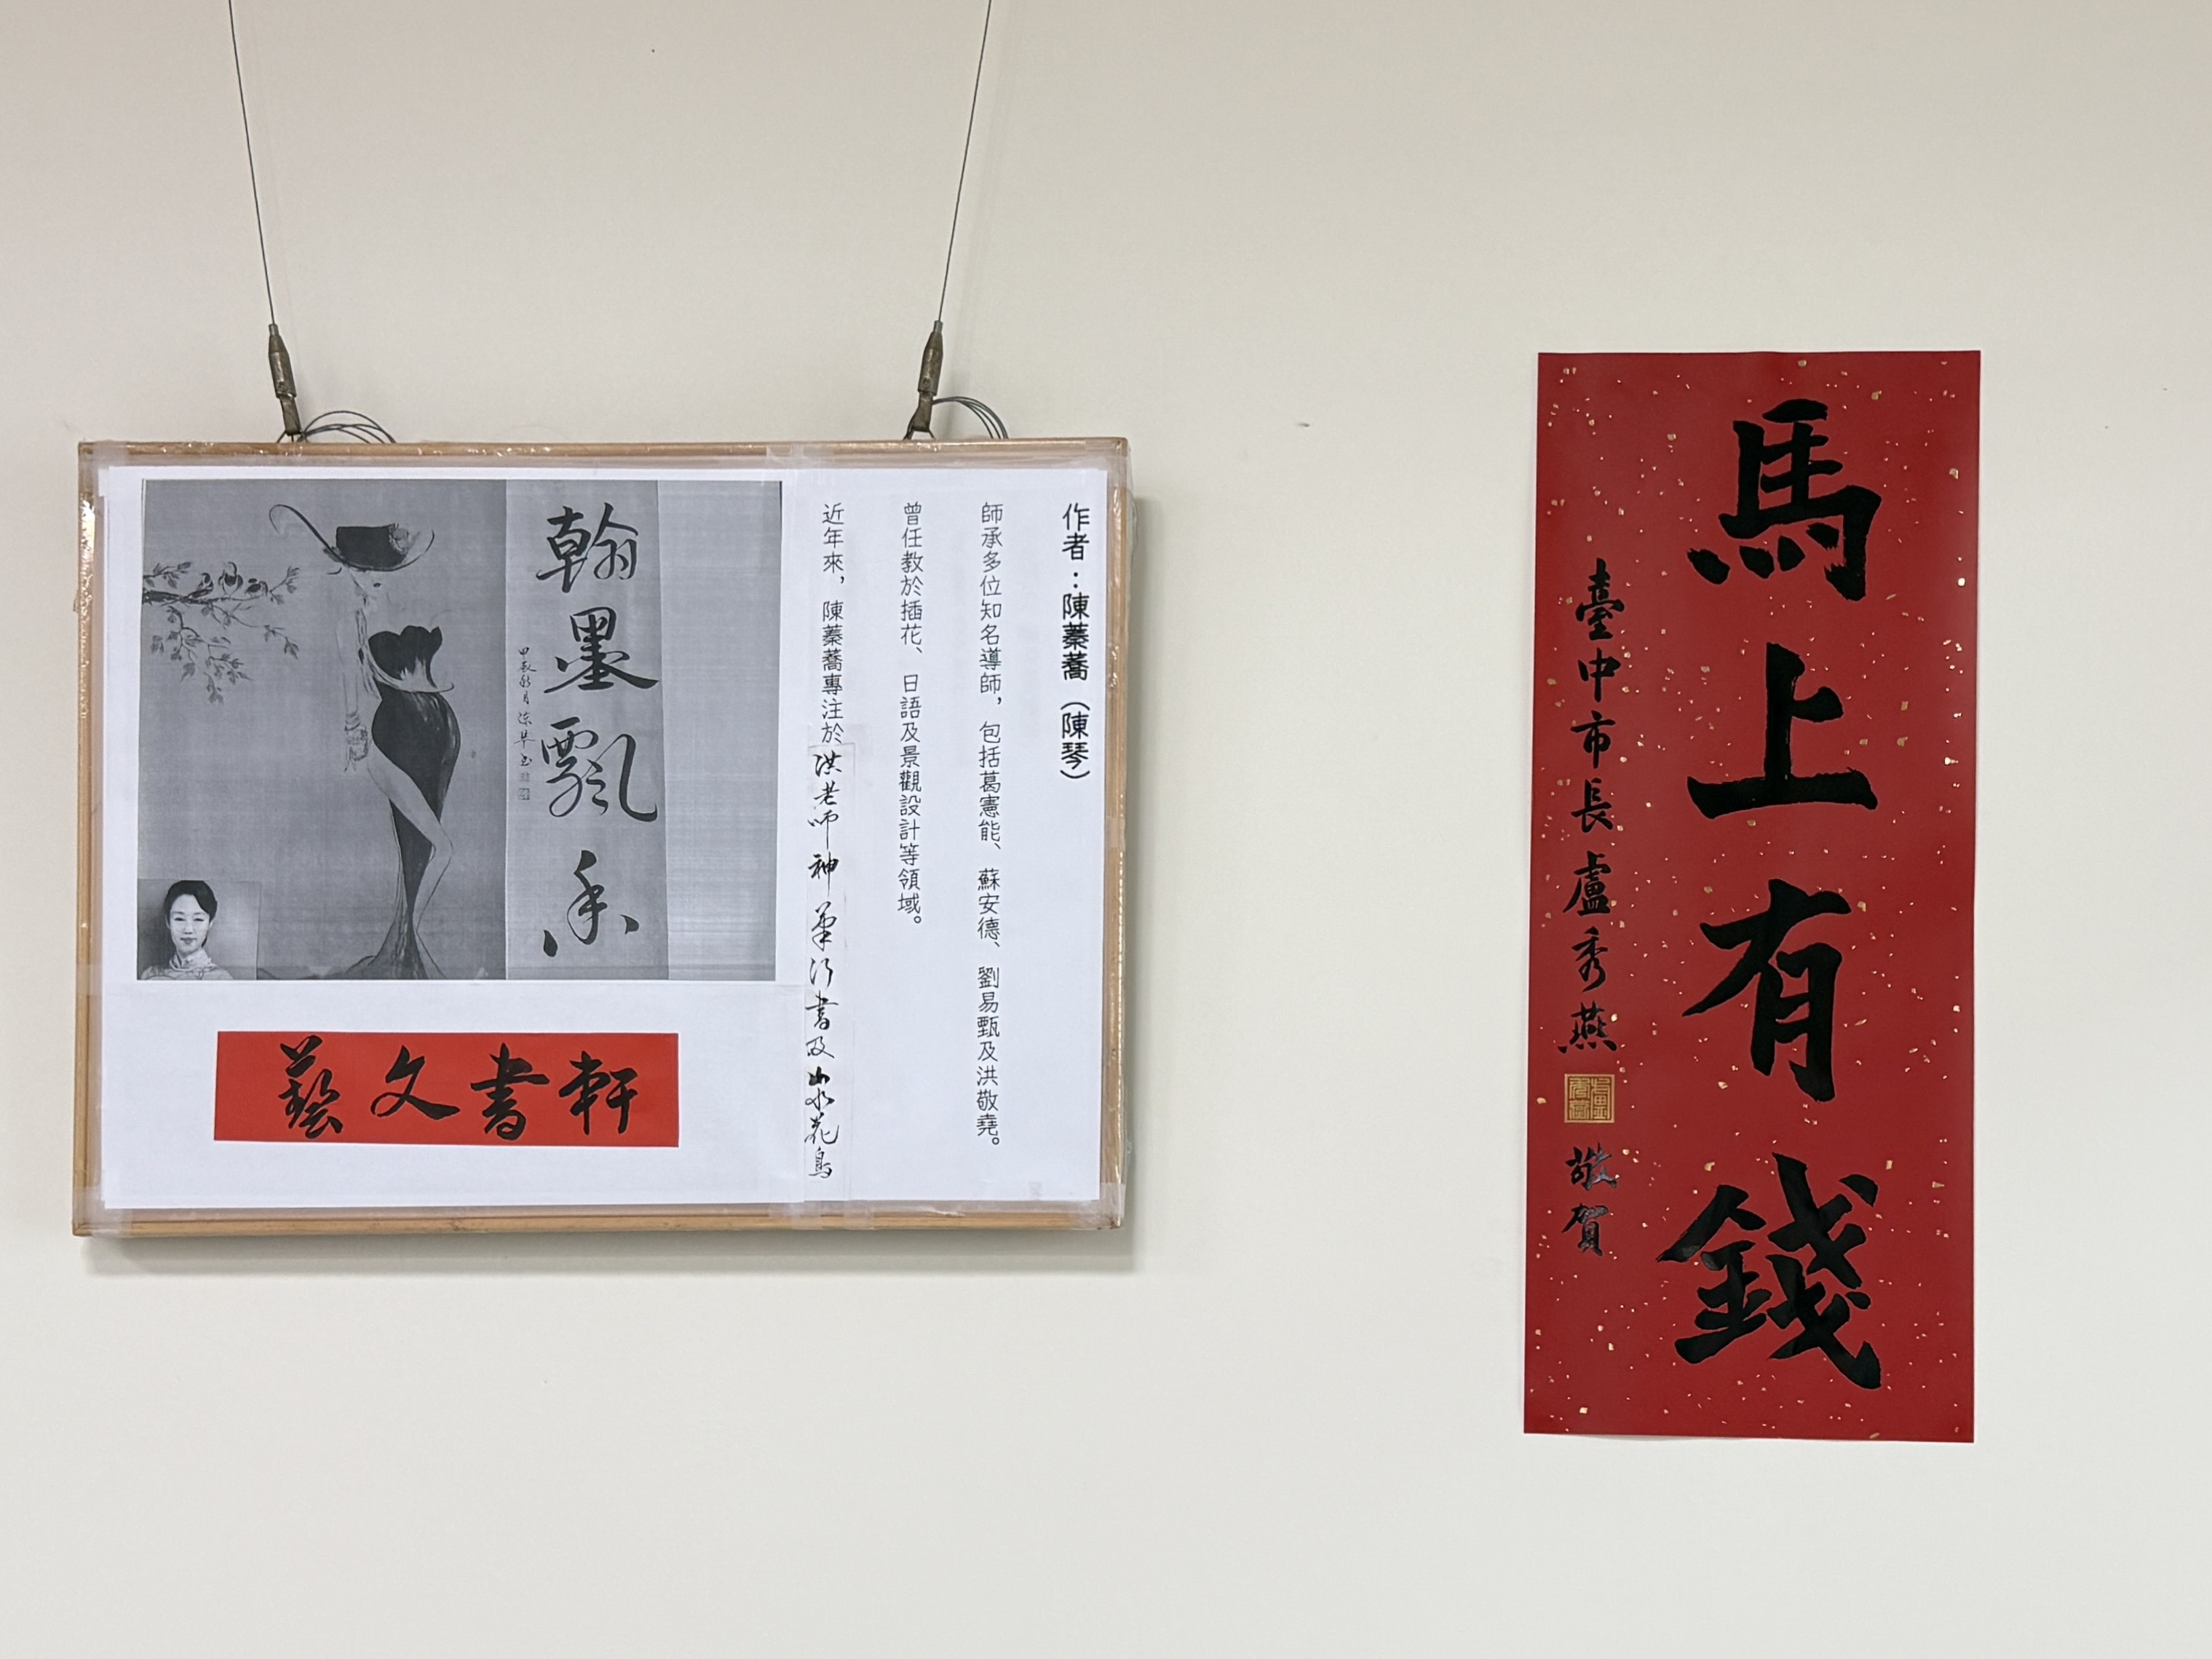 作者：陳蓁蕎（陳琴）
師承多位知名導師，包括葛憲能、蘇安德、劉易甄及洪敬堯。
曾任教於插花、日語及景觀設計等領域。
近年來，陳蓁蕎專注於洪老師神筆行書及山水花鳥
翰墨飄香
藝文書軒
馬上有錢
臺中市長盧秀燕
敬賀